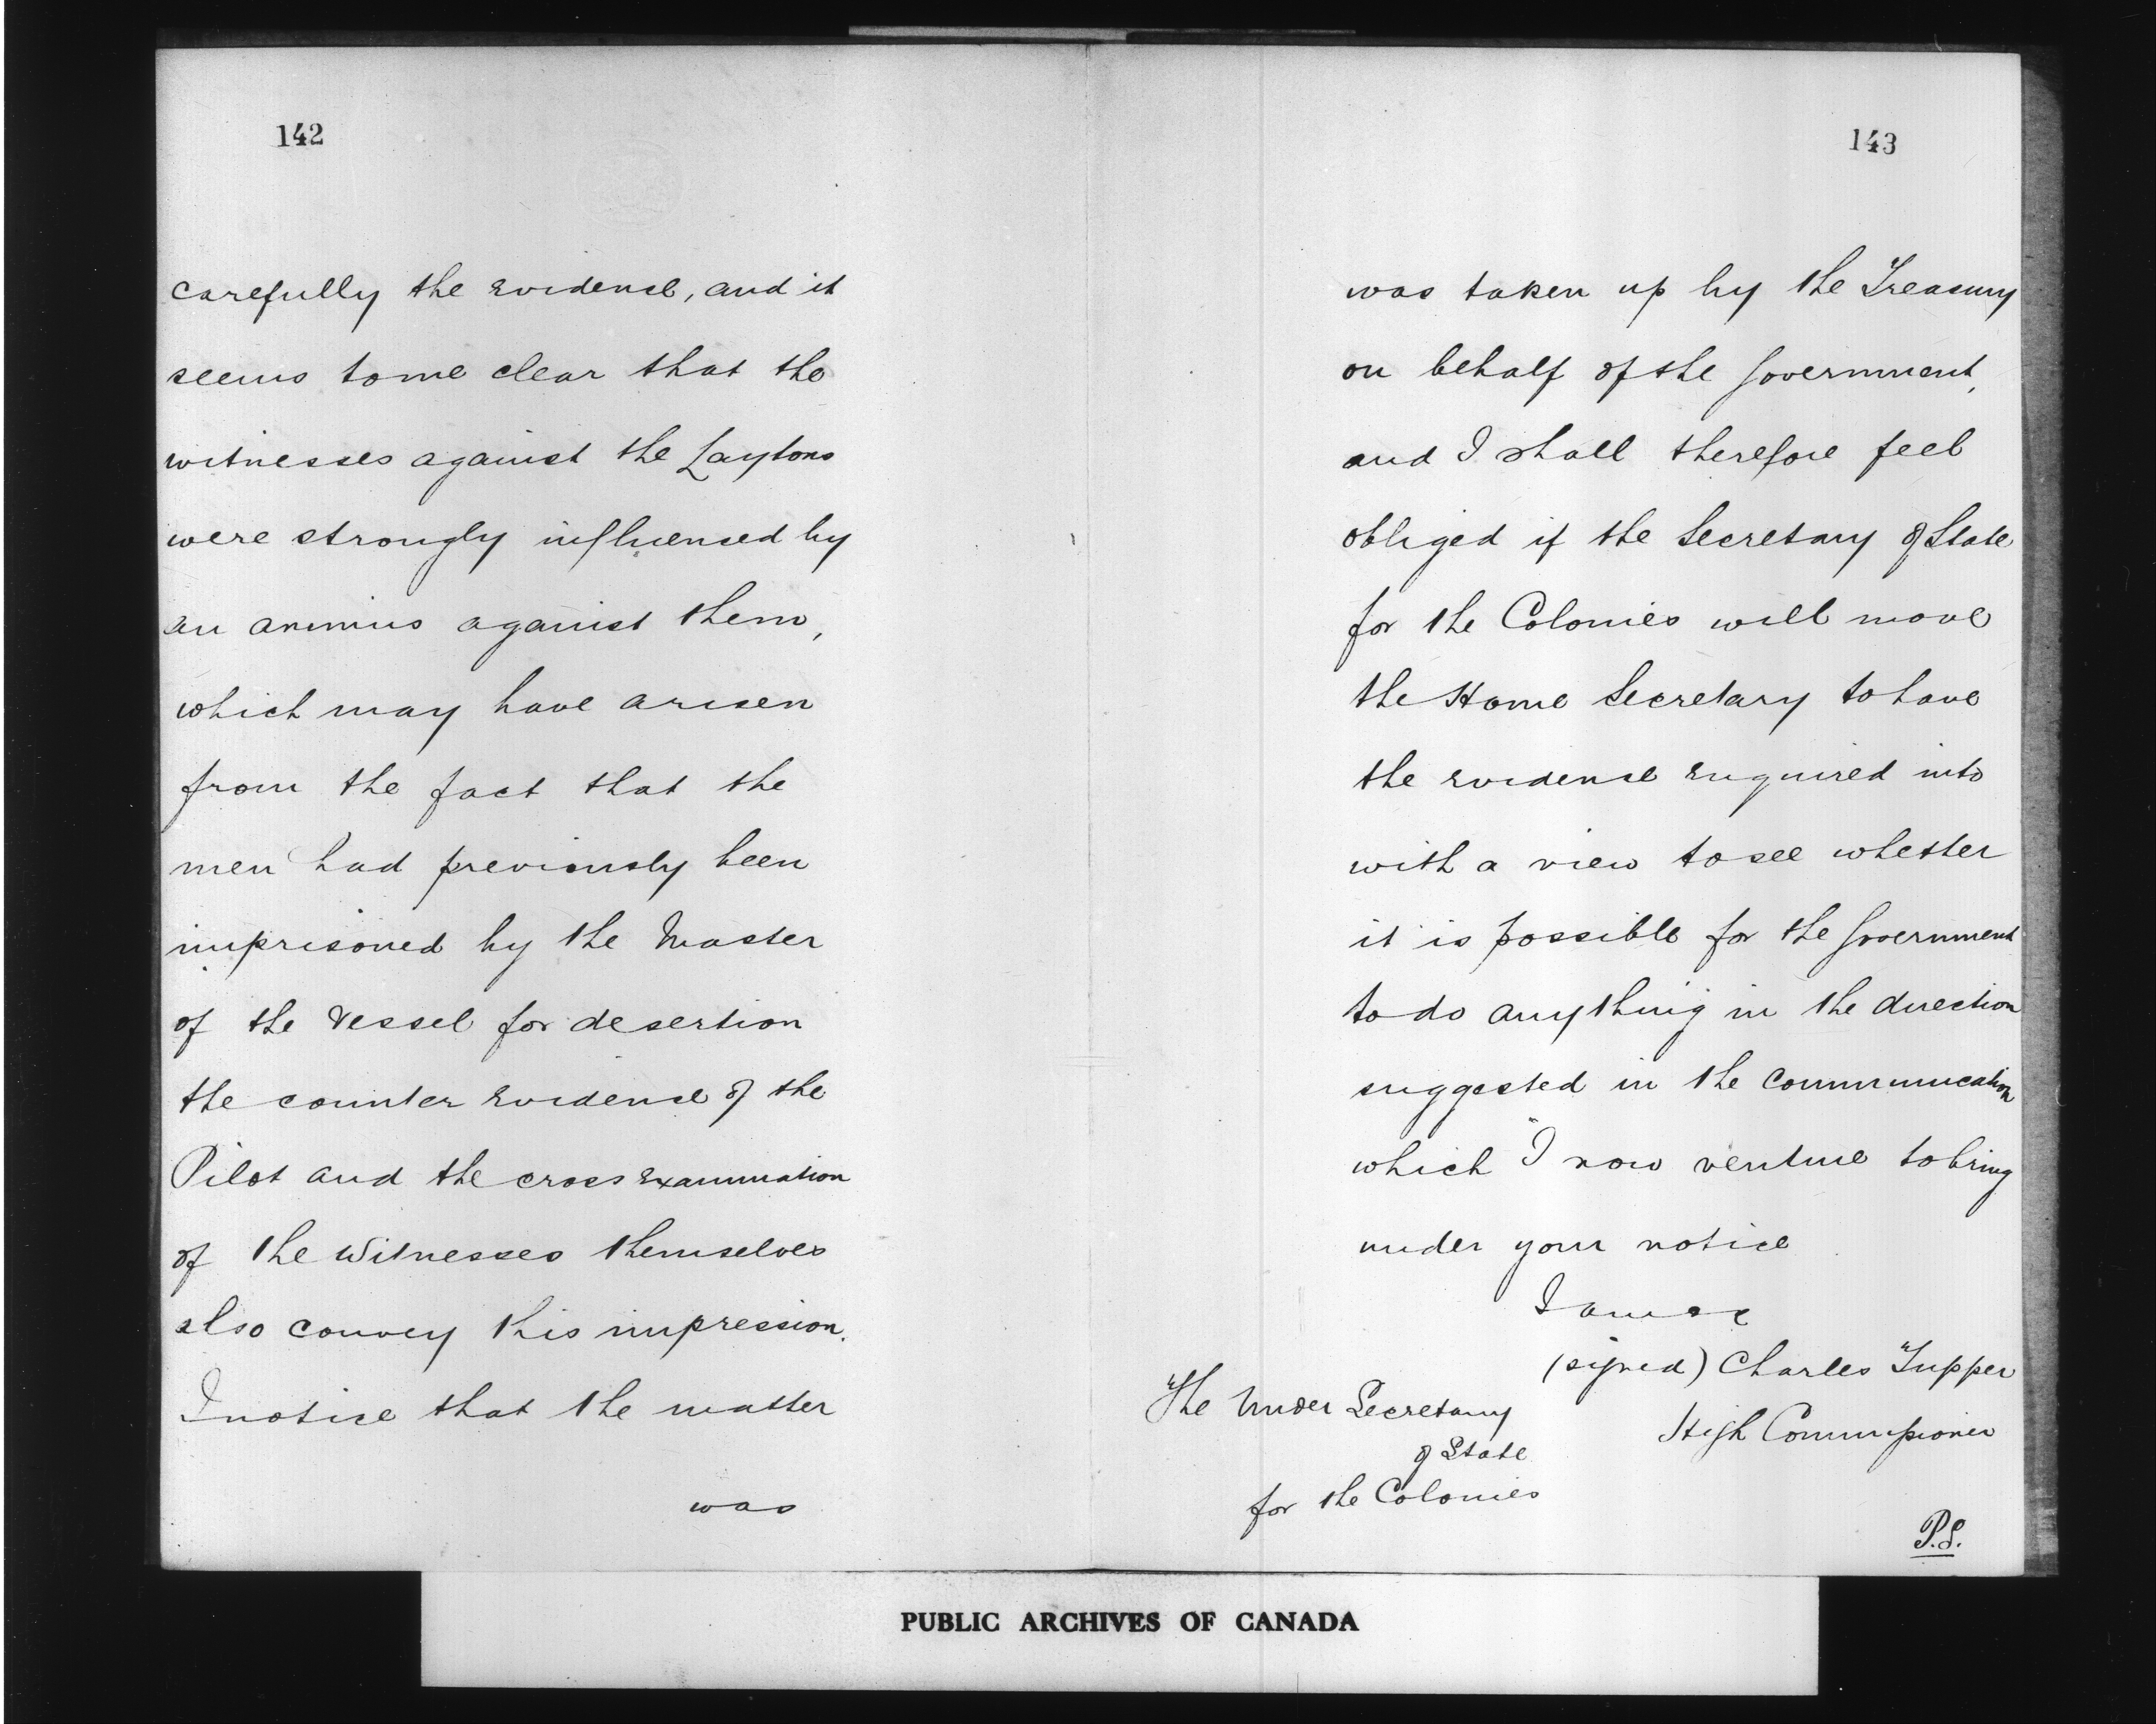 142
carefully the evidence, and it
seems to me clear that the
witnesses against the Laytons
were strongly influenced by
an animus against them,
which may have arisen
from the fact that the
men had previously been
imprisoned by the Master
of the Vessel for desertion
the counter evidence of the
Pilot and the cross examination
of the Witnesses themselves
also convey this impression.
I notice that the matter
was
143
was taken up by the Treasury
on behalf of the Government,
and I shall therefore feel
obliged if the Secretary of State
for the Colonies will move
the Home Secretary to have
the evidence enquired into
with a view to see whether
it is possible for the Government
to do anything in the direction
suggested in the communication
which I now venture to bring
under your notice
I am &c
(signed) Charles Tupper
High Commissioner
The Under Secretary
of State
for the Colonies
P.S.
PUBLIC ARCHIVES OF CANADA